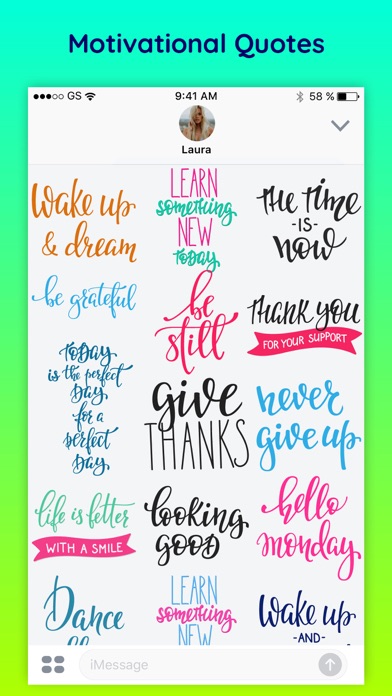 Motivational Quotes
GS
9:41 AM
58 %
Laura
wake up
& dream
LEARN
something
NEW
today
the time
-IS-
now
be grateful
be
still
thank you
FOR YOUR SUPPORT
today
is the perfect
day
for a
perfect
day
give
THANKS
never
give up
life is better
WITH A SMILE
looking
good
hello
monday
Dance
LEARN
something
NEW
wake up
-AND-
iMessage